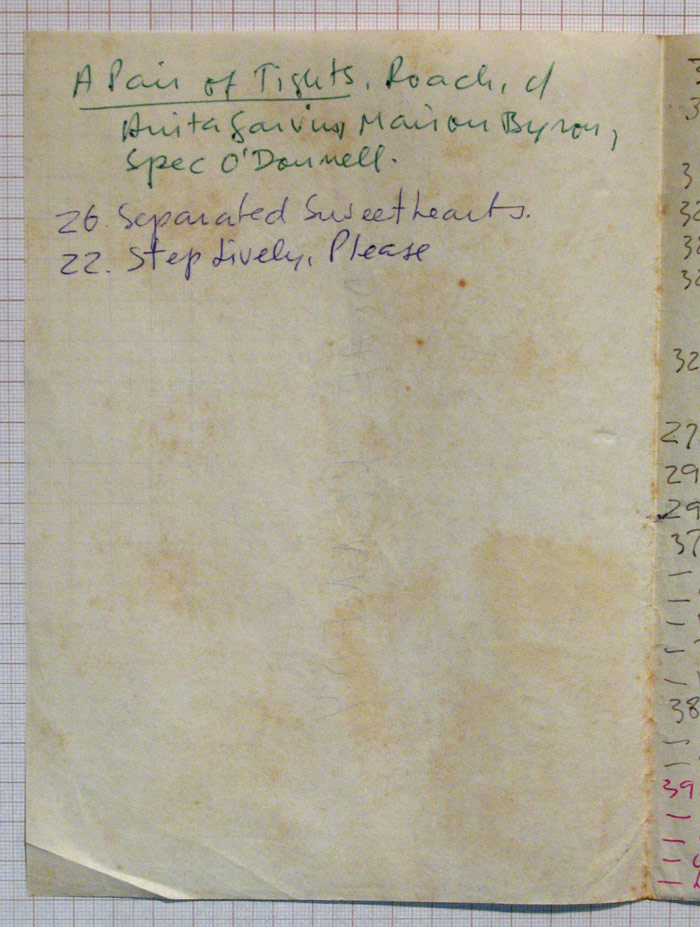 A Pair of Tights, Roach, c/
Anita Garvin, Marion Byron,
Spec O'Donnell.
26. Separated Sweethearts.
22. Step Lively, Please
3
3
3
32
32
32
32
27
29
29
37
—
—
—
—
—
38
—
—
39
—
—
—
—